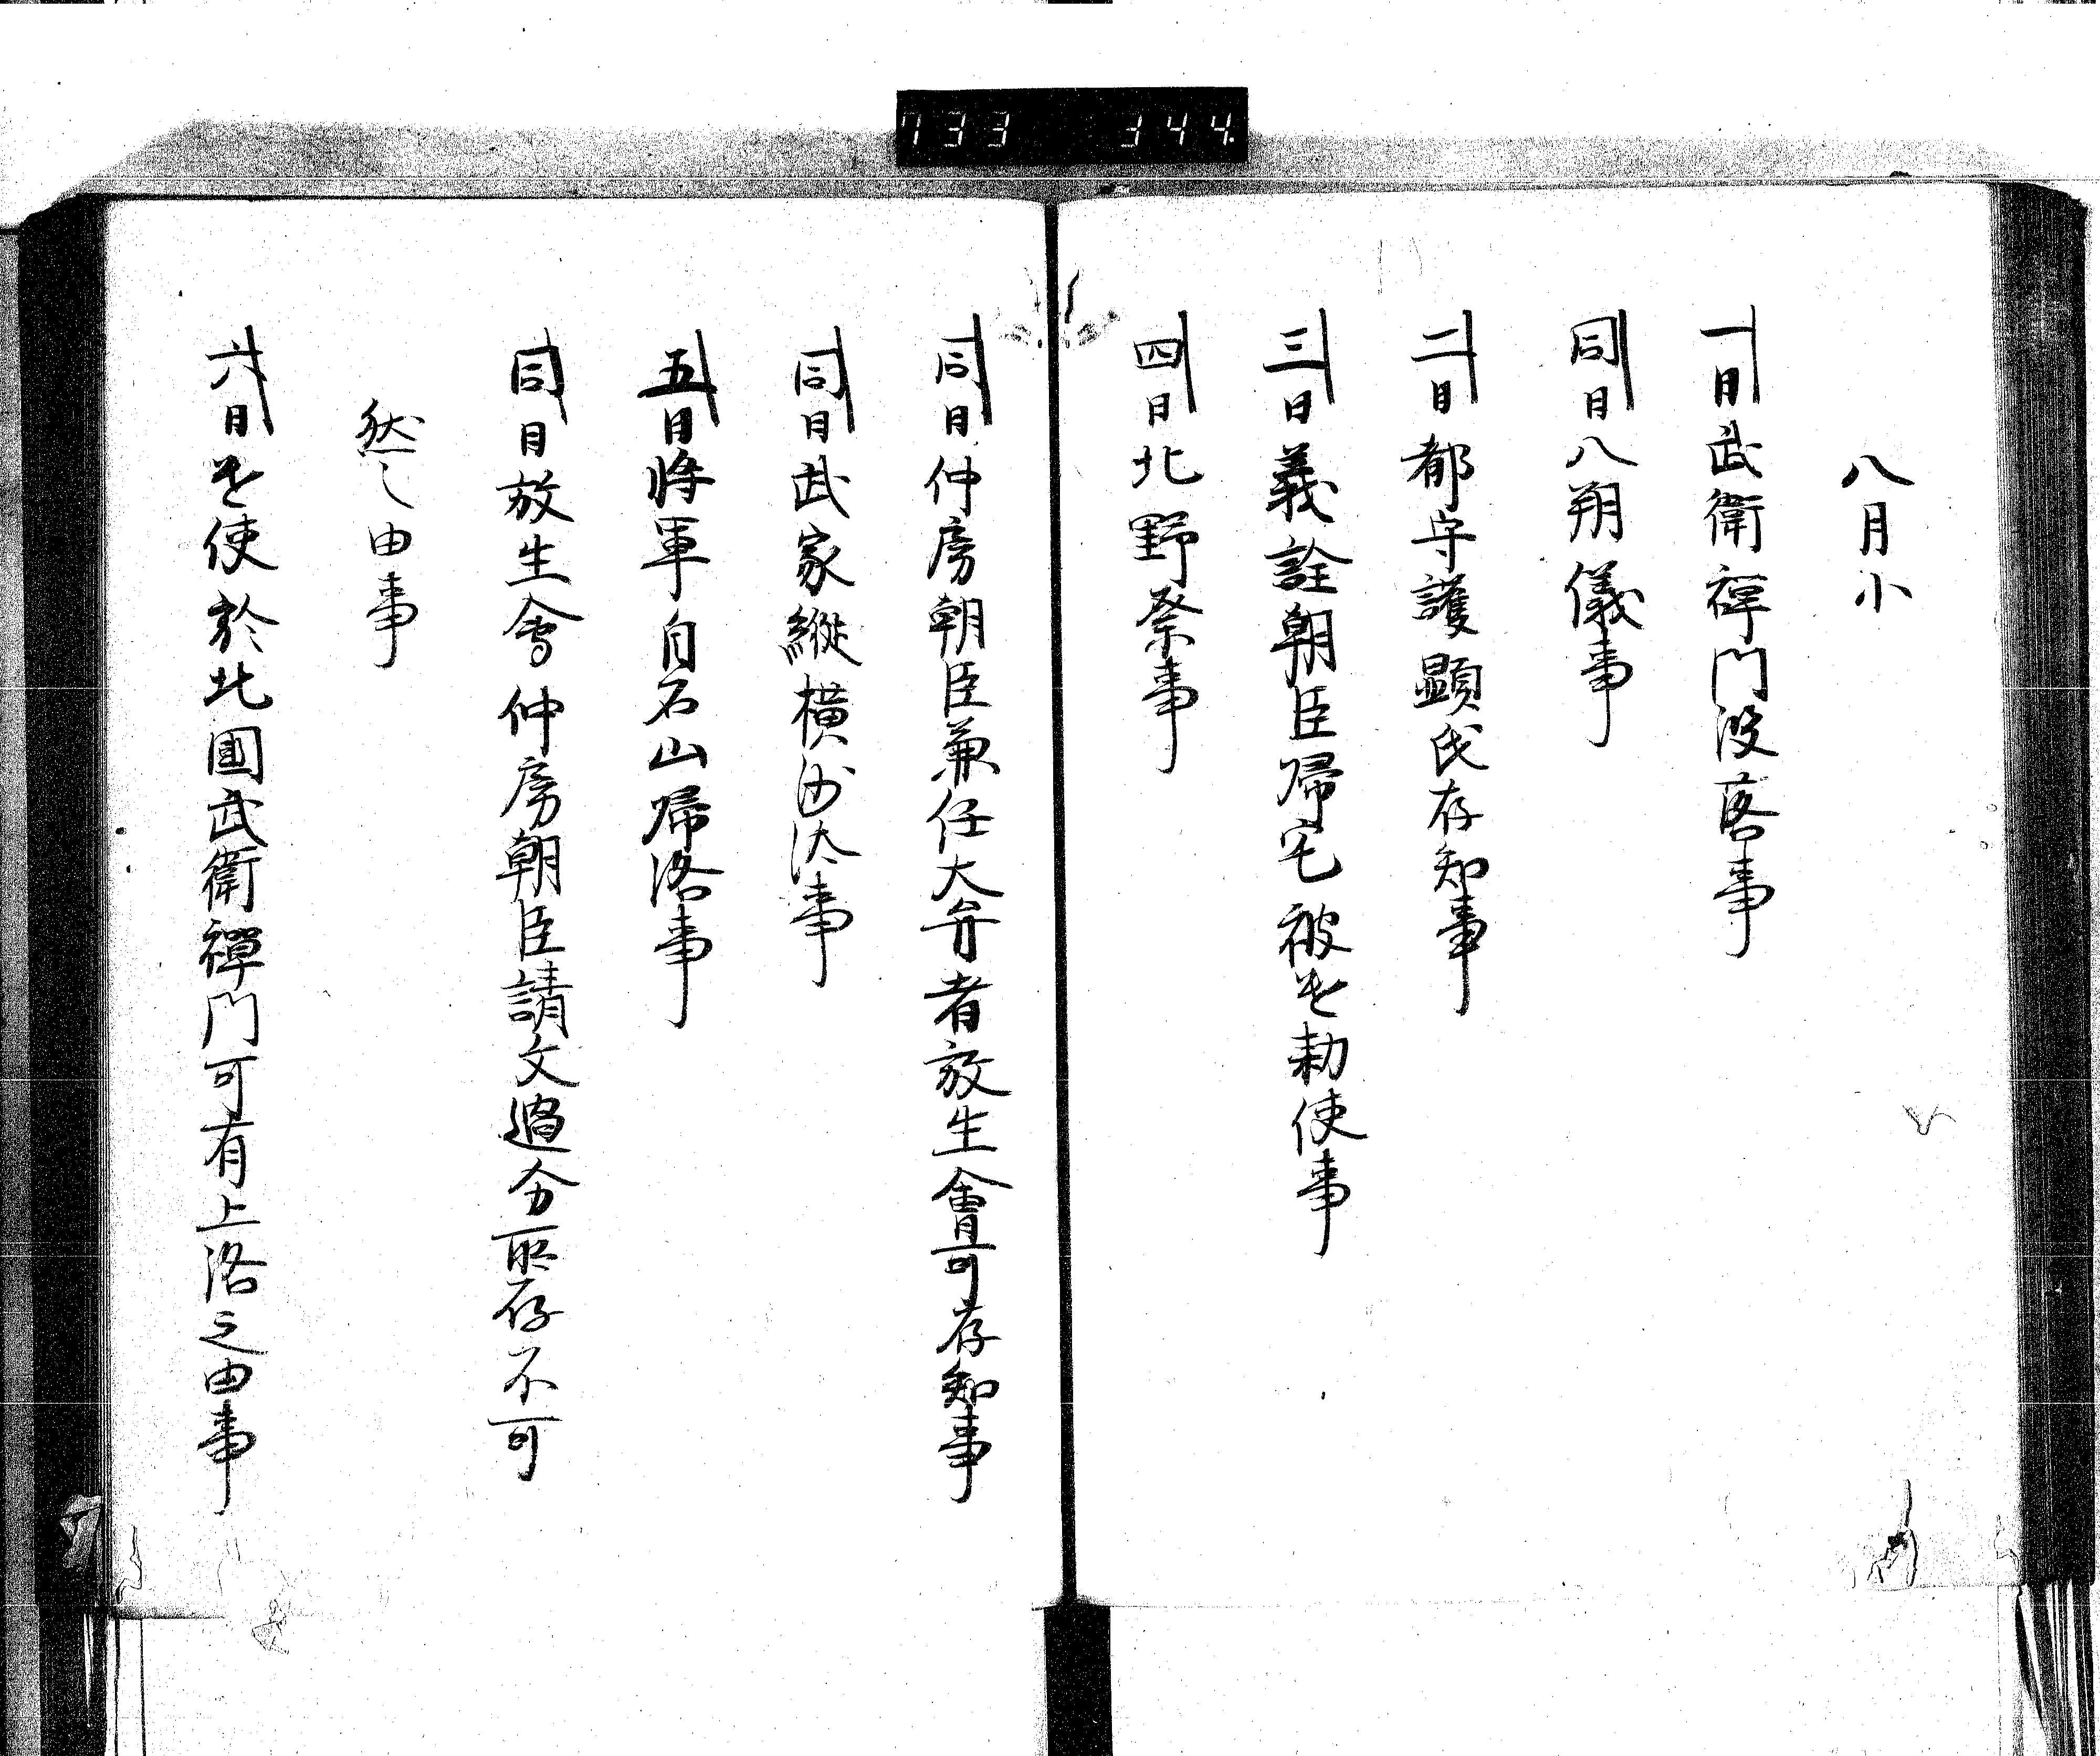 733 344
八月小
一日武衛禅門没落事
同日八朔儀事
二日都守護顕氏存知事
三日義詮朝臣帰宅被遣勅使事
四日北野祭事
同日仲房朝臣兼任大弁者放生會可存知事
同日武家縦横沙汰事
五日将軍自石山帰洛事
同日放生會仲房朝臣請文過分所存不可
然之由事
六日遣使於北國武衛禪門可有上洛之由事